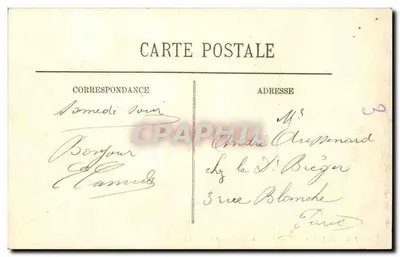 CARTE POSTALE
CORRESPONDANCE
ADRESSE
Samedi soir
Bonjour
Mr
André
chez le Dr Bréger
3 rue Blanche
Paris
CPAPHIL